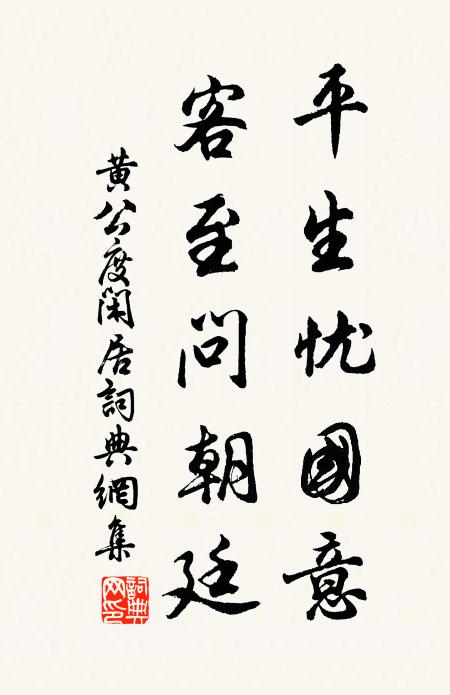 平生忧國意
客至問朝廷
黄公度閑居詞典網集
詞典网印